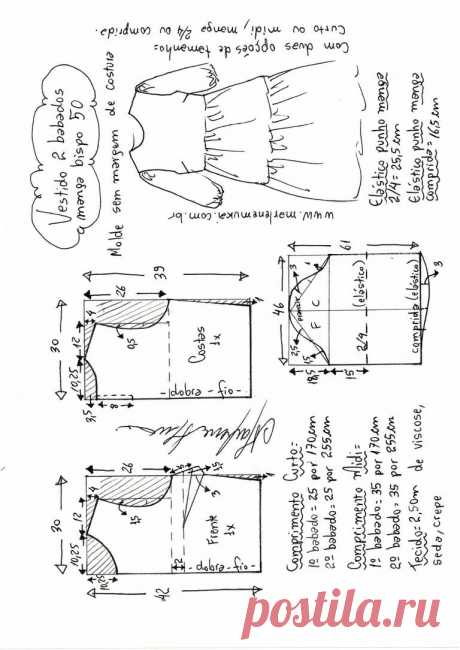 Vestido 2 babados
manga bispo 50
Molde sem margem de costura
Com duas opções de tamanho:
Curto ou midi, manga 2/4 ou comprida.
www.marlenemukai.com.br
Elástico punho manga
2/4 = 25,5 cm
Elástico punho manga
comprida = 16,5 cm
30
10,25
12
4
26
39
3,5
8
0,5
1
Costas
1x
- fio - dobra -
46
61
3
1
2,5
1,5
F
C
18,5
15
2/4 (elástico)
comprida (elástico)
3
30
10,25
12
4
26
10,25
1,5
3
1,5
1
12
42
Frente
1x
- fio - dobra -
Comprimento Curto:
1º babado = 25 por 170 cm
2º babado = 25 por 255 cm
Comprimento Midi:
1º babado = 35 por 170 cm
2º babado = 35 por 255 cm
Tecido = 2,50m de viscose,
seda, crepe
postila.ru